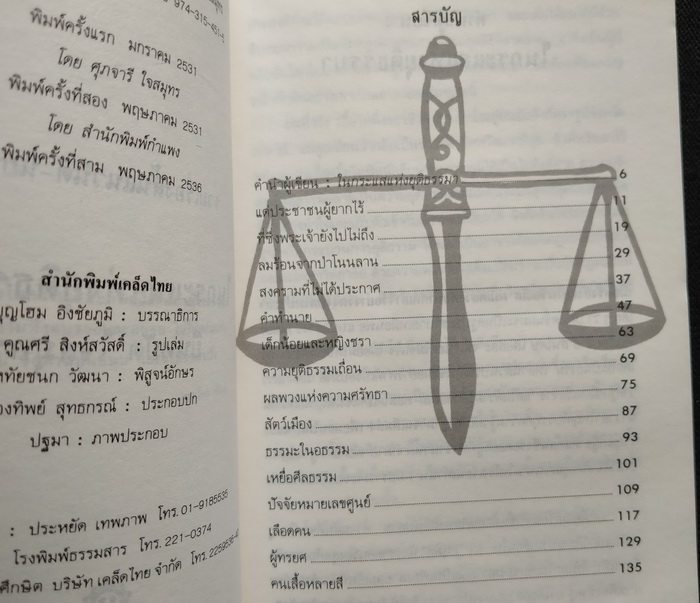 974-315-451-5
พิมพ์ครั้งแรก มกราคม 2531
โดย ศุภจารี ใจสมุทร
พิมพ์ครั้งที่สอง พฤษภาคม 2531
โดย สำนักพิมพ์กำแพง
พิมพ์ครั้งที่สาม พฤษภาคม 2536
สำนักพิมพ์เคล็ดไทย
บุญโฮม อิงชัยภูมิ : บรรณาธิการ
คูณศรี สิงห์สวัสดิ์ : รูปเล่ม
หทัยชนก วัฒนา : พิสูจน์อักษร
ทิพย์ สุทธกรณ์ : ประกอบปก
ปฐมา : ภาพประกอบ
: ประหยัด เทพภาพ โทร. 01-9185535
โรงพิมพ์ธรรมสาร โทร. 221-0374
ศึกษิต บริษัท เคล็ดไทย จำกัด โทร.
สารบัญ
คำนำผู้เขียน : ในกระแสแห่งยุติธรรมา 6
แด่ประชาชนผู้ยากไร้ 11
ที่ซึ่งพระเจ้ายังไปไม่ถึง 19
ลมร้อนจากป่าโนนลาน 29
สงครามที่ไม่ได้ประกาศ 37
คำทำนาย 47
เด็กน้อยและหญิงชรา 63
ความยุติธรรมเถื่อน 69
ผลพวงแห่งความศรัทธา 75
สัตว์เมือง 87
ธรรมะในอธรรม 93
เหยื่อศีลธรรม 101
ปัจจัยหมายเลขศูนย์ 109
เลือดคน 117
ผู้ทรยศ 129
คนเสื้อหลายสี 135